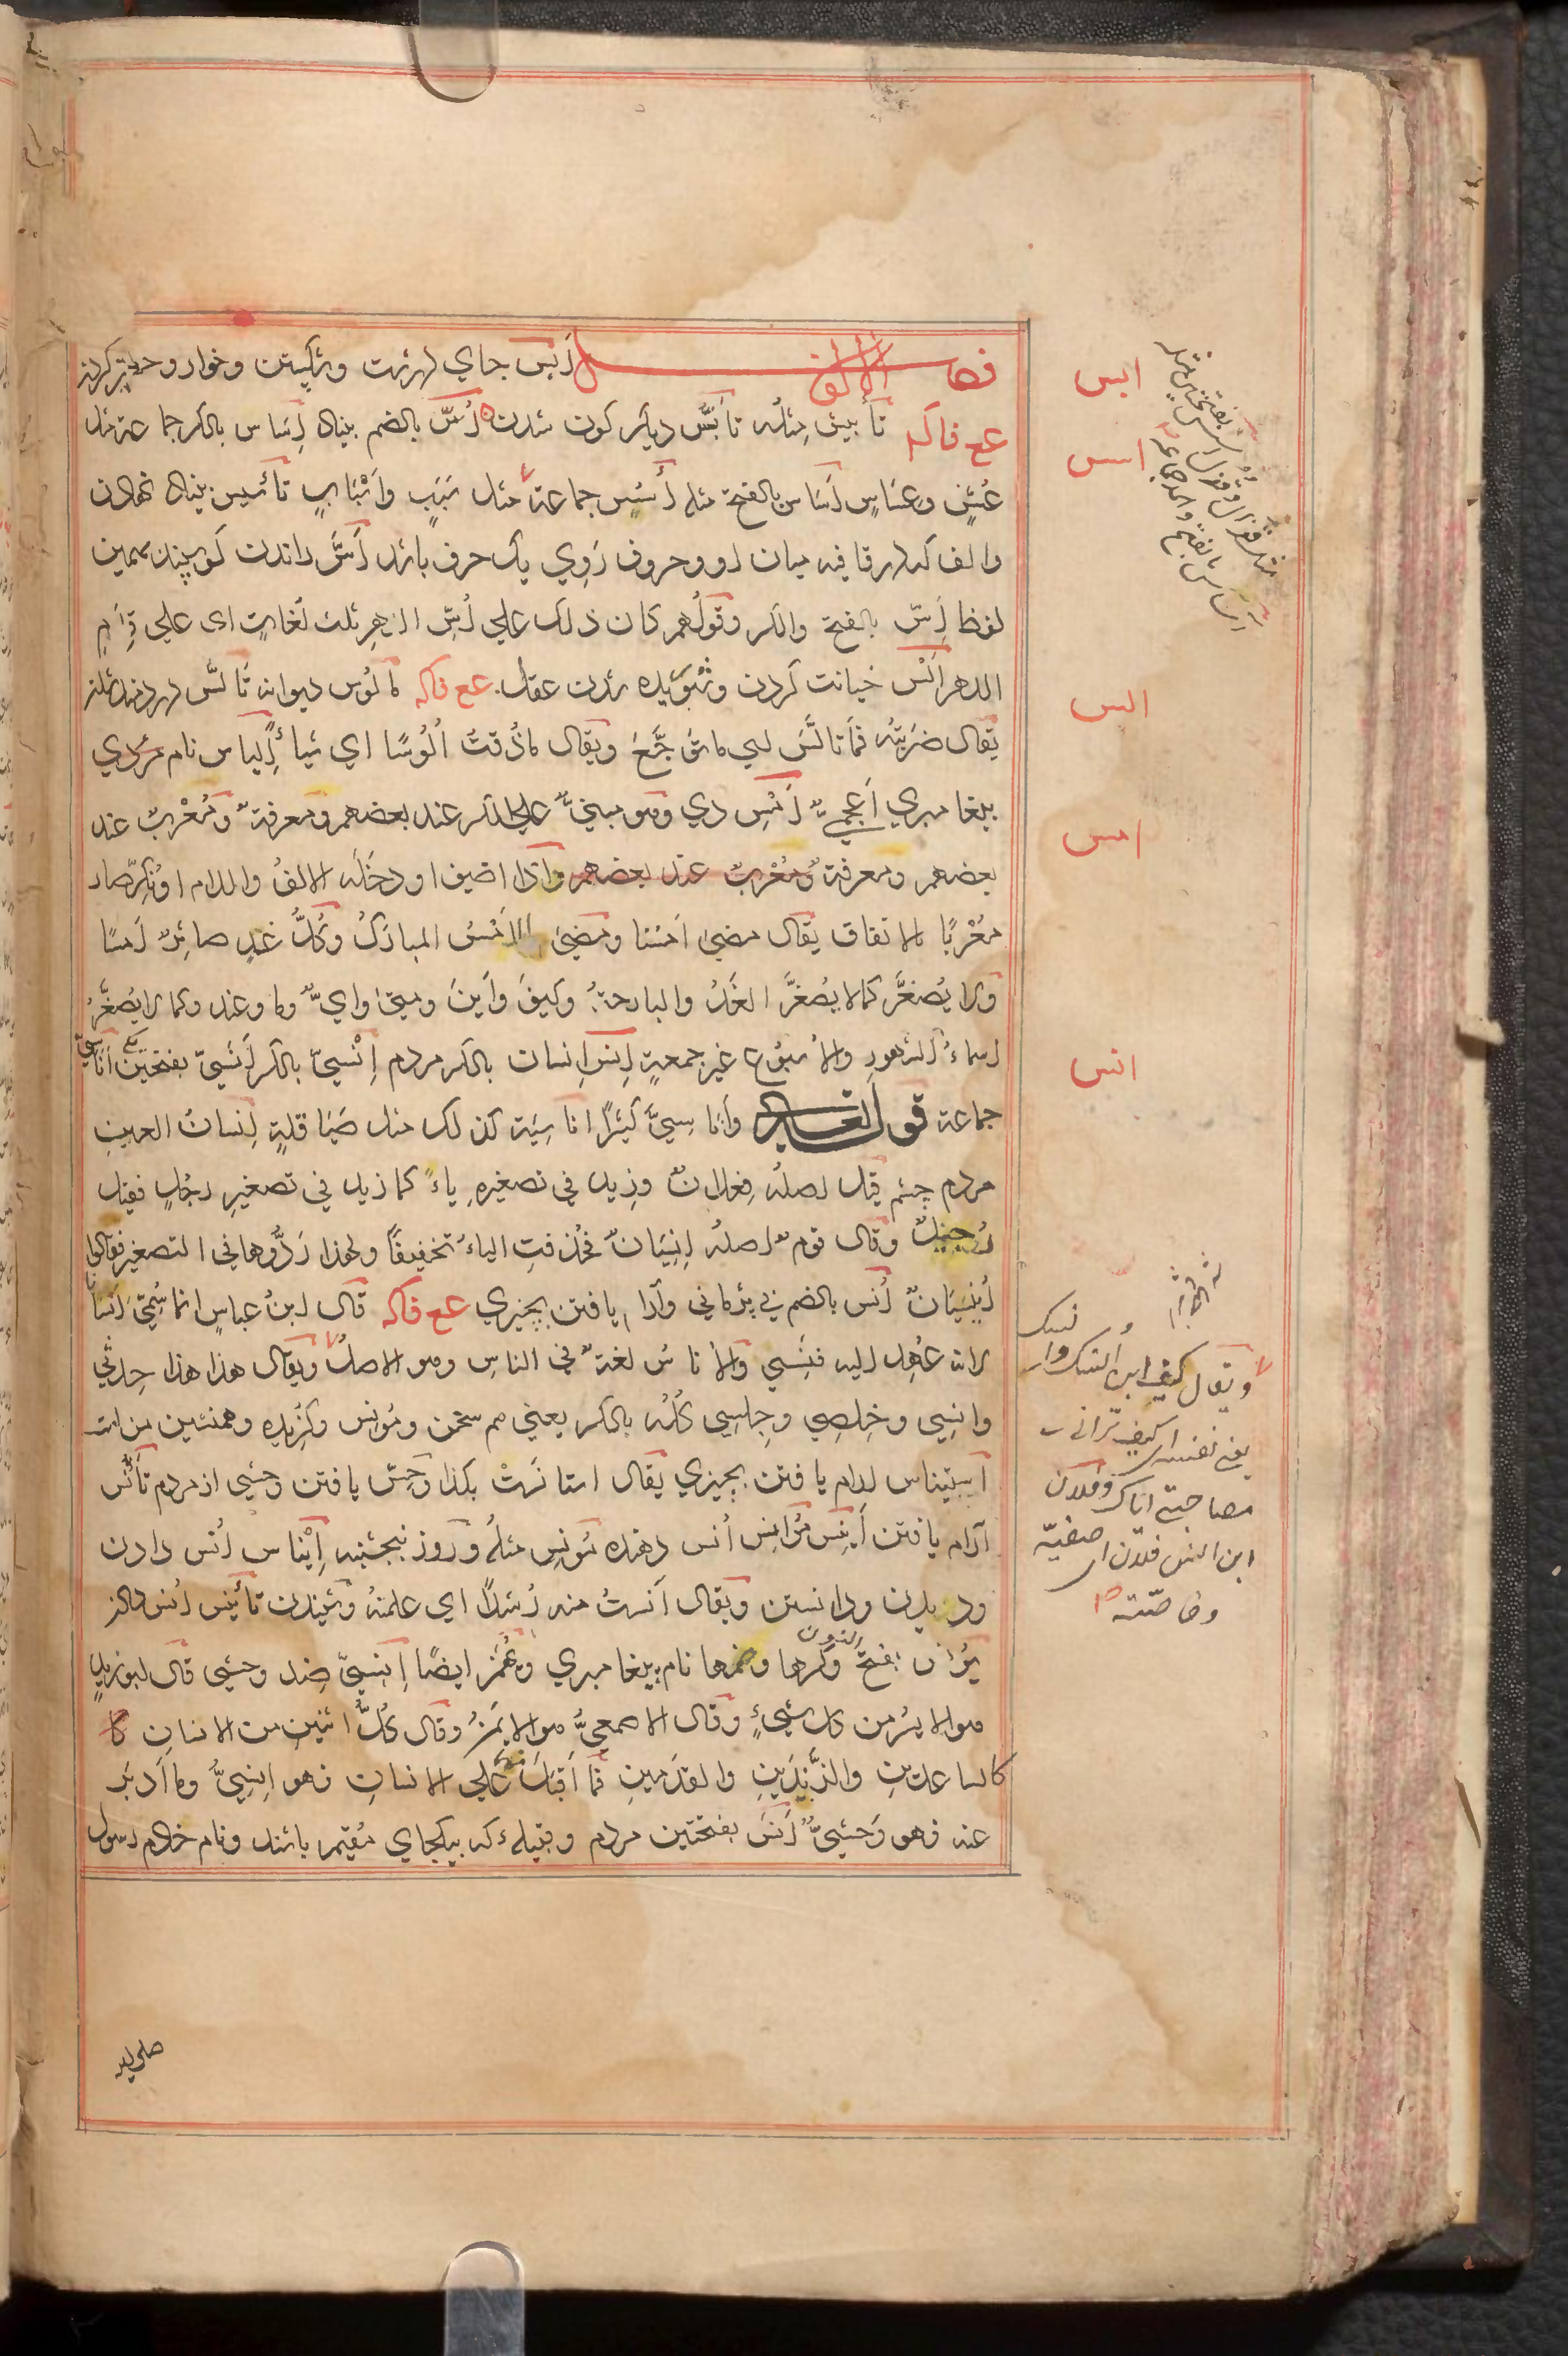 فصل الالف اَبْس جاي درشت و شكستن و خوار و حقير كردن
ع ف ك تأبيس مثلُه تأَبُّس ديكر كون شدن اُسّ بالضم بنياد اِسَاس بالكسر جماعة مثل
عُسٍّ وعِسَاسٍ اَسَاس بالفتح مثله اُسُس جماعة مثل سَبَبٍ واَسْبَابٍ تأسيس بنياد نهادن
والف كه در قافيه ميان او و حروف رَوِي يك حرف باشد اَسّ راندن كوسپند بهمين
لفظ اِسّ بالفتح والكسر وقولُهم كان ذلك على اُسِّ الدهر ثلث لُغاتٍ اى على قِدَمِ
الدهر اَلْس خيانت كردن و شوريده شدن عقل ع ف ك مالُوس ديوانه تَالُّس دردمند شدن
يقال ضَرَبتُه فمَا تَالَّسَ اي ما تَوَجَّعَ ويقال ما ذُقتُ اَلُوسًا اي شيأً اِلياس نام مردي
پيغامبري اَعجميّ اَمْسِ دي وهو مبنيٌّ على الكسر عند بعضهم ومعرفةٌ ومُعْربٌ عند
بعضهم ومعرفةٌ ومُعْربٌ عند بعضهم واذا اضيف او دخَلَه الالفُ واللام او نُكِّر صار
مُعْرَبًا بالاتفاق يقال مضى اَمسُنا ومَضَى الاَمْسُ المباركُ وكُلُّ غدٍ صائرٌ اَمسًا
ولا يُصغَّر كما لا يُصغَّر الغَدُ والبارحةُ وكيفَ واَينَ ومتىٰ وايٌّ وما وعند وكما لا يُصغَّرُ
اسماءُ الشهورِ والاُسبُوعِ غيرَ جمعةٍ اِنس اِنسان بالكسر مردم اِنْسيّ بالكسر اَنَسيّ بفتحتين يكي اَناسيّ
جماعة قولُه تعالى وأنَاسِيَّ كَثيرًا اناسِيَة كذلك مثل صَيَاقلةٍ اِنسانُ العينِ
مردم چشم قيل اصلُه فِعْلانٌ وزِيدَ في تصغيرِه ياءٌ كما زيد في تصغيرِ رجُلٍ فقيل
رُوَيجِلٌ وقال قومٌ اصلُه اِنسِيَانٌ فحُذفتِ الياءُ تخفيفًا ولهذا رَدُّوها في التصغير فقالوا
اُنَيسِيَانٌ اُنس بالضم بي بژماني وآرام يافتن بچيزي ع ف ك قال ابنُ عباسٍ انما سُمِّيَ اِنسانًا
لانه عُهِدَ اليه فنَسِيَ والاُناسُ لغةٌ في الناسِ وهو الاصلُ ويقال هذا هذا حِدْثي
وانسِي وخِلصي وجِلسِي كلُّه بالكسر يعني هم سخن ومُونس وكُزيده وهمنشين من است
اِستِيناس آرام يافتن بچيزي يقال استانَستْ بكذا وحش يافتن وحشي از مردم تأَنُّس
آرام يافتن اَنِيس مُوانِس اُنس دهنده مُونِس مثلُه وروز پنجشنبه اِيْناس اُنس دادن
وديدن ودانستن ويقال آنَستُ منه رُشدًا اي علمتُه وشنيدن تأنيس اُنس دادن
يُونس بفتح النون وكسرها وضمها نام پيغامبري ويُهمَز ايضًا اِنسيّ ضد وحشي قال ابو زيدٍ
هو الايسُر من كل شيءٍ وقال الاصمعيُّ هو الايمَنُ وقال كُلُّ اثنينِ من الانسانِ كا
كالساعدَينِ والزَّندَينِ والقدمينِ فما اَقبَلَ منهما على الانسانِ فهو اِنسيٌّ وما اَدبَر
عنه فهو وَحشيٌّ اَنَس بفتحتين مردم وقبيله كه بيكجاي مقيم باشند ونام خادم رسول
صلى الله
ابس
اسس
الس
امس
انس
ويقال كيف ابن انسك وانسك
يعني نفسه اى كيف تراني
مصاحبتي اياك وفلان
ابن انس فلان اى صفيّه
وخاصّته